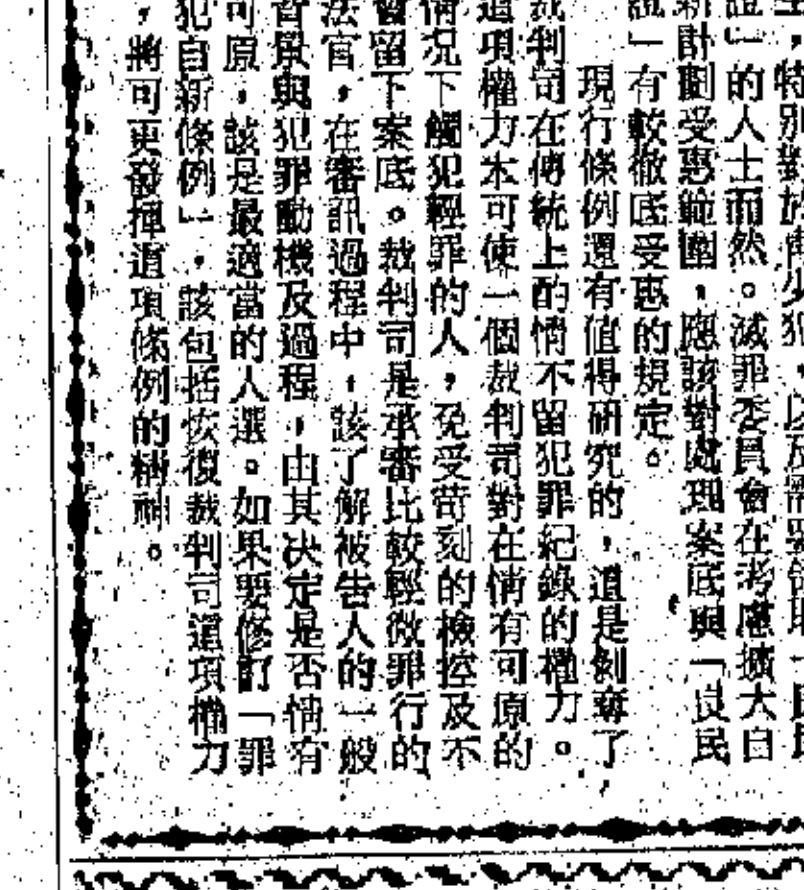 生，特別對於青少犯，以及需要借助「良民
證」的人士而然。滅罪委員會在考慮擴大自
新計劃受惠範圍，應該對處理案底與「良民
證」有較徹底受惠的規定。
現行條例還有值得研究的，這是剝奪了，
裁判司在傳統上酌情不留犯罪紀錄的權力。
這項權力本可使一個裁判司對在情有可原的
情况下觸犯輕罪的人，免受苛刻的檢控及不
會留下案底。裁判司是承審比較輕微罪行的
法官，在審訊過程中，該了解被告人的一般
背景與犯罪動機及過程，由其決定是否情有
可原，該是最適當的人選。如果要修訂「罪
犯自新條例」，該包括恢復裁判司這項權力
，將可更發揮這項條例的精神。